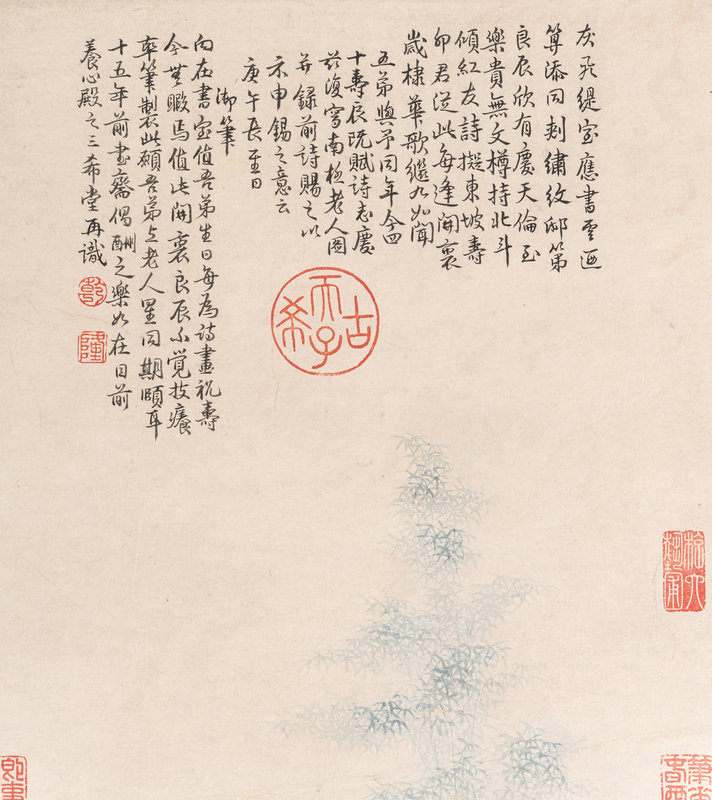 灰飛緹室應書雲遐
算添同刻繡紋邸第
良辰欣有慶天倫至
樂貴無文樽持北斗
傾紅友詩擬東坡壽
卯君從此每逢開袠
歲棣華歌繼九如聞
五弟與予同年今四
十壽辰既賦詩志慶
茲復寫南極老人圖
并録前詩賜之以
示申錫之意云
庚午長至日
御筆
向在書室值吾弟生日每為詩畫祝壽
今無暇焉值此開袠良辰不覺技癢
率筆製此願吾弟与老人星同期頤耳
十五年前書齋倡酬之樂如在目前
養心殿之三希堂再識
乾
隆
古希天子